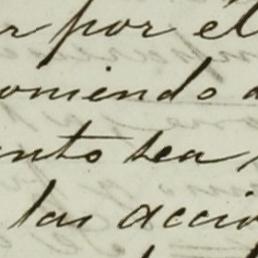 r por él
oniendo a
ento sea
las accio